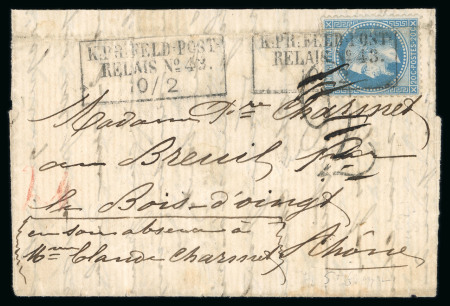 K.PR. FELD-POST-
RELAIS No 43.
10/2
K.PR. FELD-POST-
RELAIS No 43.
Madame Vre Charmet
au Breuil
Le Bois-d'oingt
en son absence à
Mme Claude Charmet
Rhône